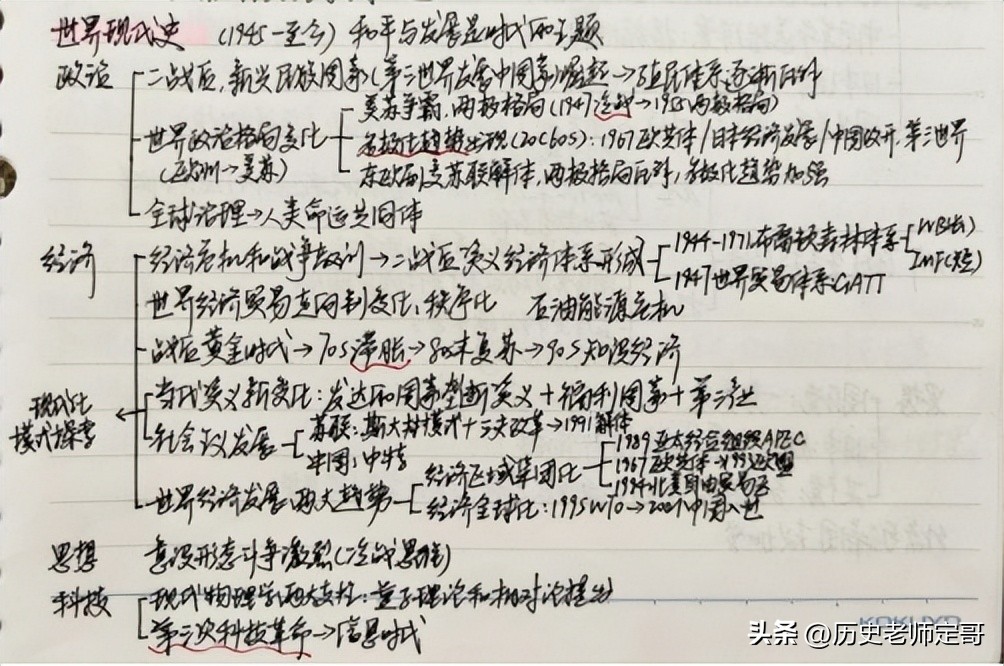 世界现代史 (1945-至今) 和平与发展是时代的主题
政治 二战后,新兴民族国家(第三世界发展中国家)崛起→殖民体系逐渐瓦解
美苏争霸,两极格局(1947冷战→1955两极格局)
世界政治格局变化 多极化趋势出现(20C60S):1967欧共体/日本经济发展/中国改开,第三世界
(欧洲→美苏) 东欧剧变苏联解体,两极格局瓦解,多极化趋势加强
全球治理→人类命运共同体
经济 经济危机和战争教训→二战后资义经济体系形成 1944-1971布雷顿森林体系 WB(长)
IMF(短)
1947世界贸易体系GATT
世界经济贸易走向制度化,秩序化 石油能源危机
战后黄金时代→70S滞胀→80末复苏→90S知识经济
现代化 当代资义新变化:发达的国家垄断资义+福利国家+第三产业
模式探索 社会主义发展 苏联:斯大林模式+三次改革→1991解体
中国:中特
世界经济发展两大趋势 经济区域集团化 1989亚太经合组织APEC
1967欧共体→1993欧盟
1994北美自由贸易区
经济全球化:1995WTO→2001中国入世
思想 意识形态斗争激烈(冷战思维)
科技 现代物理学两大支柱:量子理论和相对论提出
第三次科技革命→信息时代
头条 @历史老师定哥